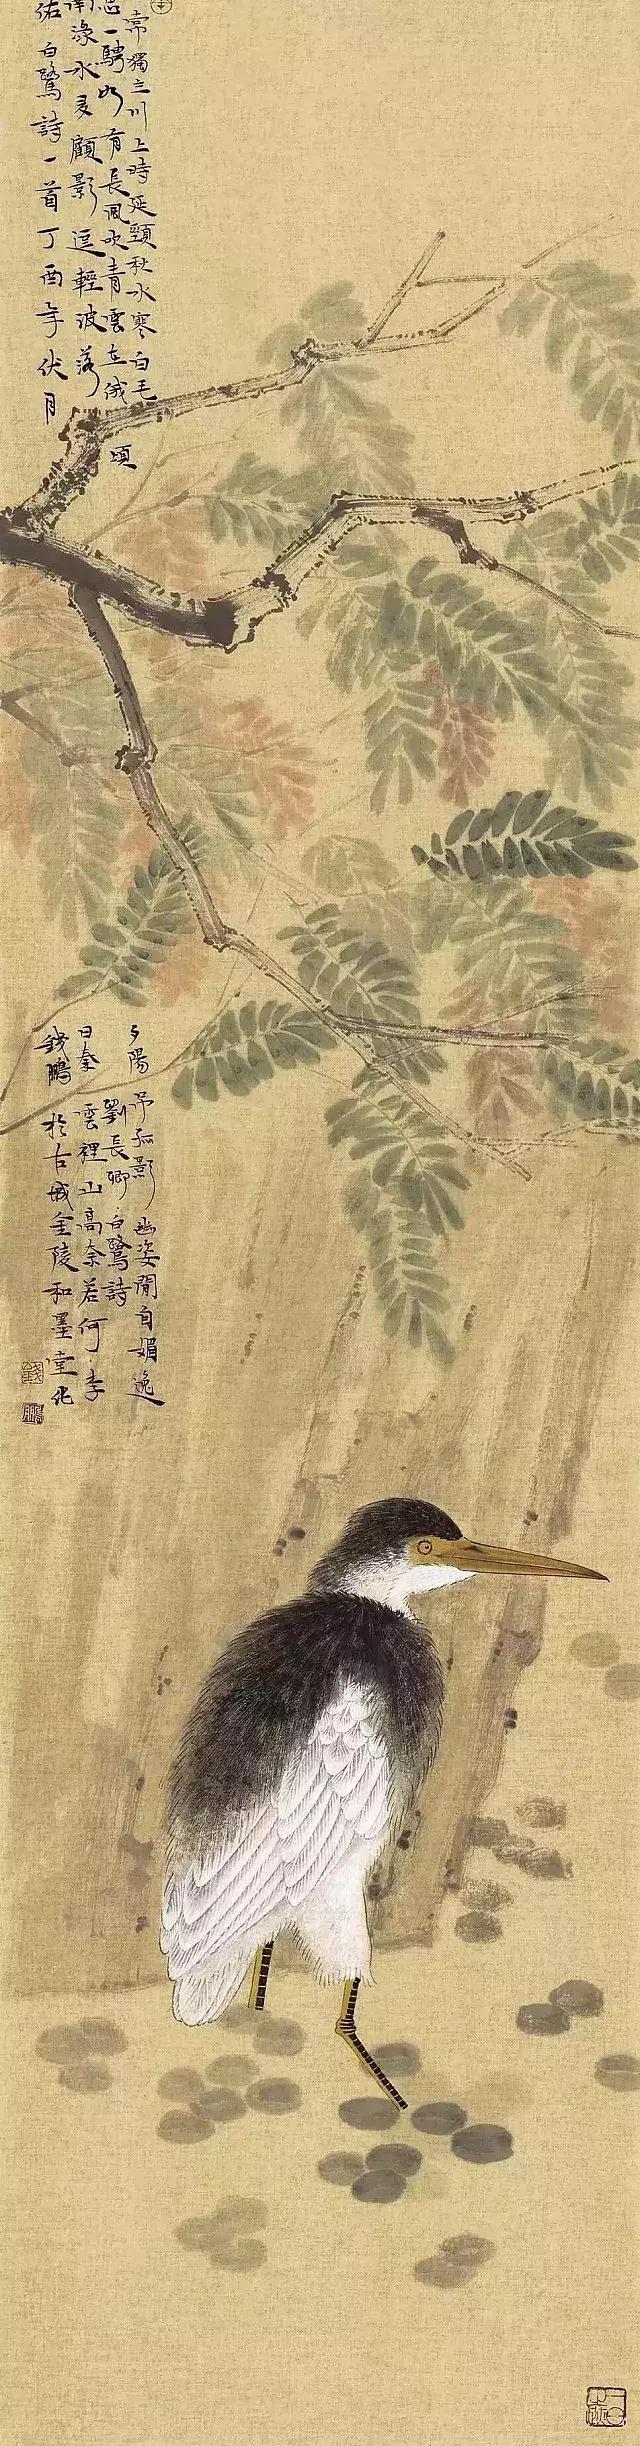 常獨立川上時延頸秋水寒白毛
夕陽弔孤影幽姿閒自媚逸
一騁如有長風吹青雲在俄頃
劉長卿·白鷺詩
南淥水多顧影逗輕波落
日秦雲裡山高奈若何·李
佑白鷺詩一首丁酉年伏月
錢鵬於古城金陵和墨堂化
錢
鵬